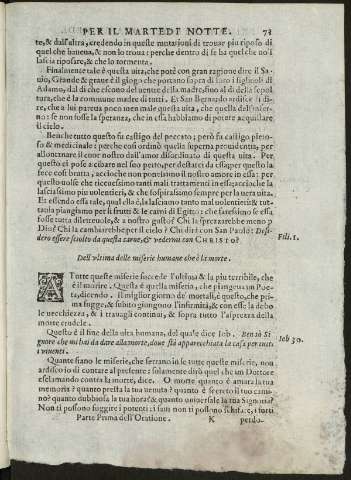 PER IL MARTEDI NOTTE. 73
te, & dall'altra, credendo in queste mutationi di trouar piu riposo di
quel che haueua, & non lo troua: perche dentro di se ha quel che nō l
lascia riposare, & che lo tormenta.
Finalmente tale è questa uita, che potè con gran ragione dire il Sa-
uio, Grande & graue è il giogo che portano sopra di loro i figliuoli di
Adamo, dal dì che escono del uentre della madre, sino al dì della sepol
tura, che è la commune madre di tutti. Et San Bernardo ardisce di di-
re, che a lui pareua poco men male questa uita, che quella dell'infer-
no: se non fosse la speranza, che in essa habbiamo di potere acquistare
il cielo.
Benche tutto questo fu castigo del peccato; però fu castigo pieto-
so & medicinale: perche così ordinò quella superna prouidentia, per
allontanare il cuor nostro dall'amor disordinato di questa uita. Per
questo ci pose acibaro nel suo petto, per destarci da essa: per questo la
fece così brutta, accioche non pontassimo il nostro amore in essa: per
questo uolse che riceuessimo tanti mali trattamenti in essa; accioche la
lasciassimo piu uolentieri, & che sospirassimo sempre per la uera uita.
Et essendo essa tale, qual ella è, la lasciamo tanto mal uolentieri: & tut-
tauia piangiamo per i frutti & le carni di Egitto: che faressimo se essa
fosse tutta diletteuole, & a nostro gusto? Chi la sprezzarebbe meno p
Dio? Chi la cambiarebbe per il cielo? Chi dirà con San Paulo: Desi-
dero essere sciolto da questa carne, & vedermi con CHRISTO?
Fili. 1.
Dell'vltima delle miserie humane che è la morte.
A Tutte queste miserie succede l'ultima & la piu terribile, che
è il morire. Questa è quella miseria, che piangeua un Poe-
ta, dicendo. Il miglior giorno de' mortali, è questo, che pri-
ma fugge, & subito giungono l'infirmità, & con esse la debo
le uecchiezza, & i trauagli continui, & sopra tutto l'asprezza della
morte crudele.
Questo è il fine della uita humana, del quale dice Iob. Ben sò Si-
gnore che mi hai da dare alla morte, doue stà apparecchiata la casa per tutti
i viuenti.
Iob 30.
Quante siano le miserie, che serrano in se tutte queste miserie, non
ardisco io di contare al presente: solamente dirò quel che un Dottore
esclamando contra la morte, dice. O morte quanto è amara la tua
memoria? quanto presta la tua uenuta? quanto è secreto il tuo cami-
no? quanto dubbiosa la tua hora? & quanto uniuersale la tua Signoria?
Non ti possono fuggire i potenti: i sauij non ti possono schifare, i forti
Parte Prima dell'Oratione. K perdo-